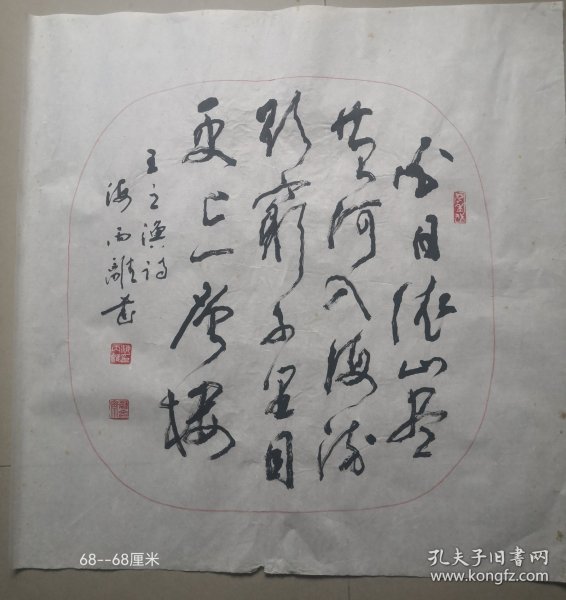 白日依山尽
黄河入海流
欲穷千里目
更上一层楼
王之涣诗
海雨
68--68厘米
孔夫子旧书网
www.kongfz.com